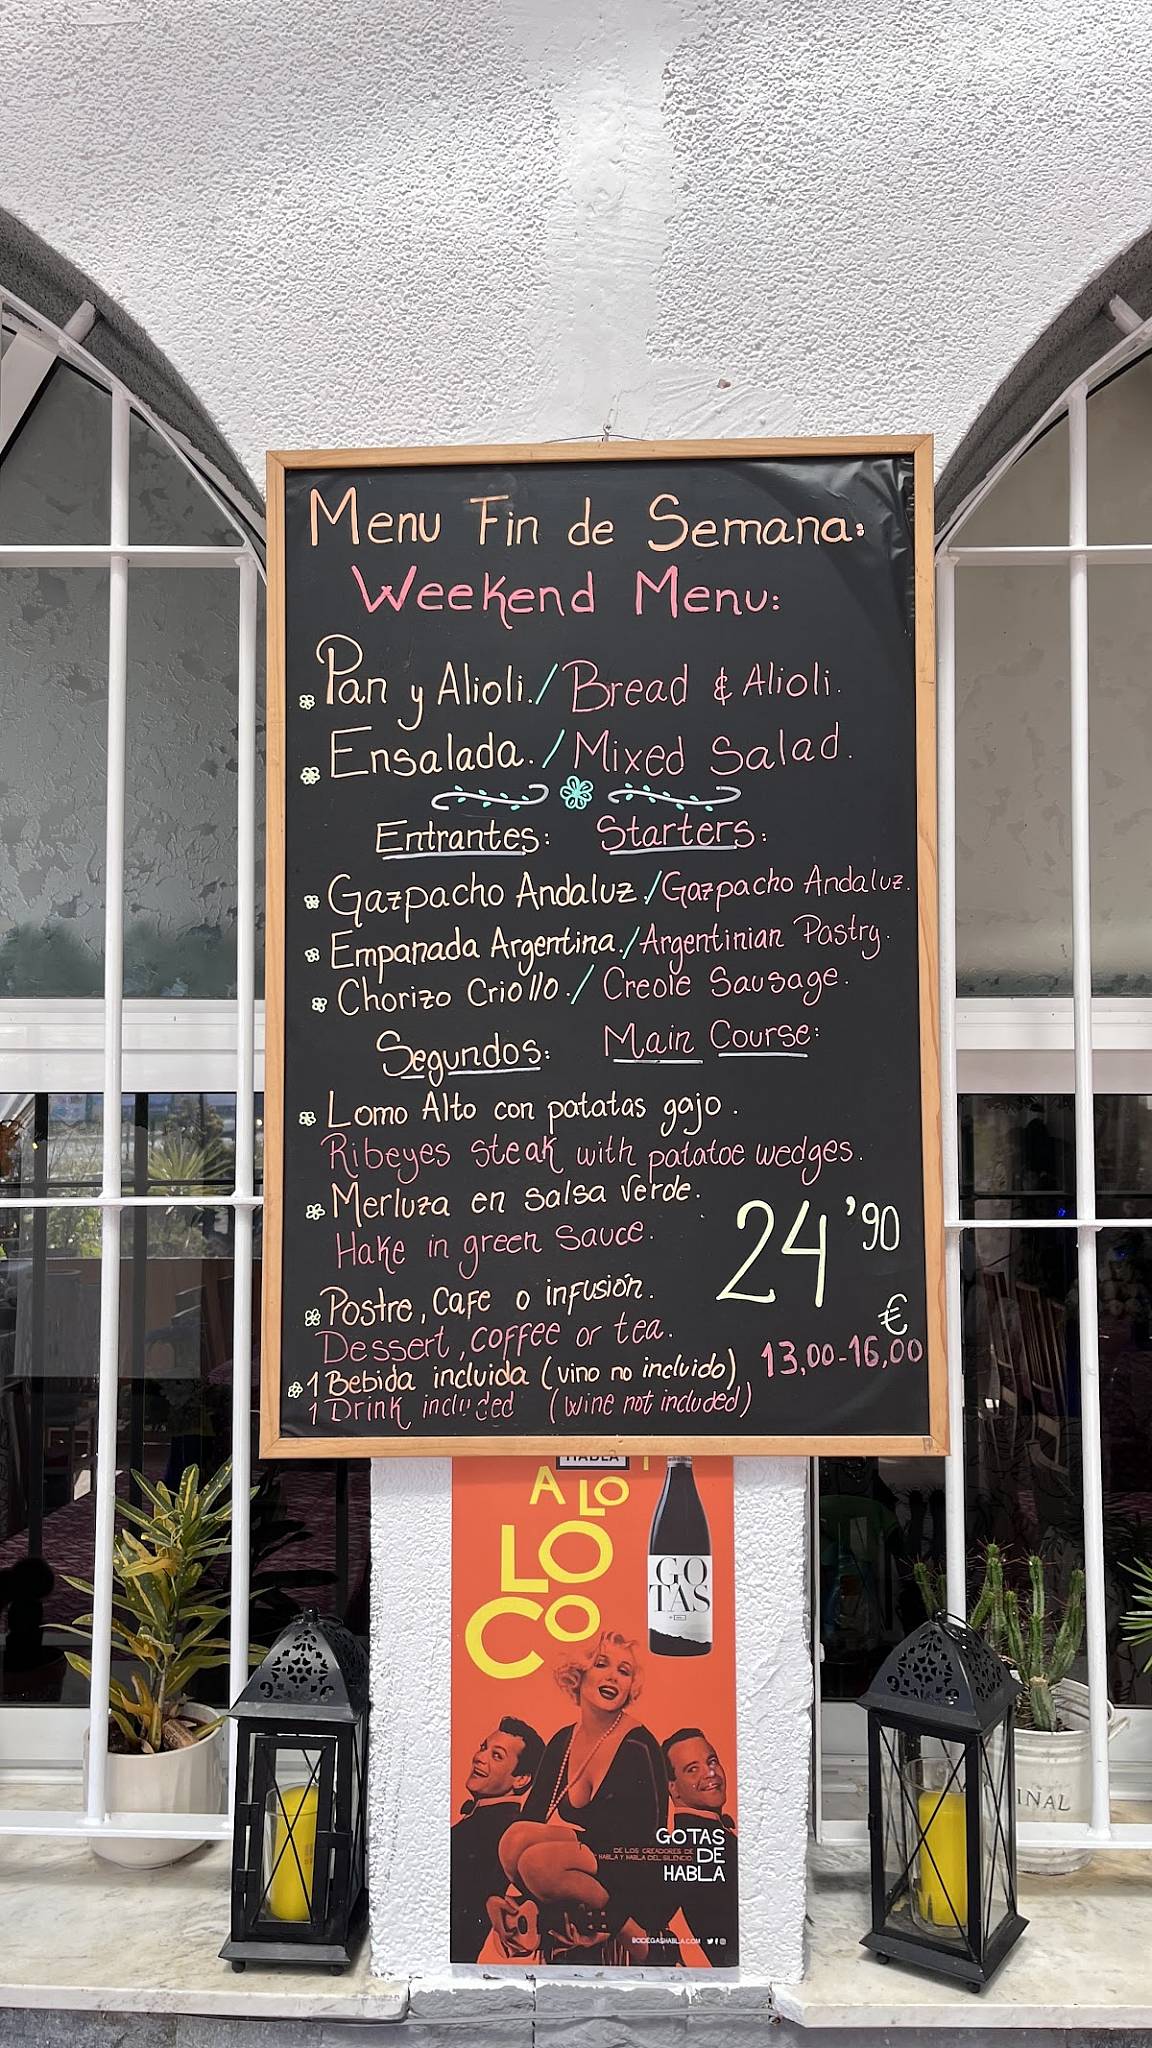 Menu Fin de Semana:
Weekend Menu:
Pan y Alioli./Bread & Alioli.
Ensalada./Mixed Salad.
Entrantes: Starters:
Gazpacho Andaluz./Gazpacho Andaluz.
Empanada Argentina./Argentinian Pastry.
Chorizo Criollo./Creole Sausage.
Segundos: Main Course:
Lomo Alto con patatas gajo.
Ribeyes steak with patatoe wedges.
Merluza en salsa verde.
Hake in green sauce.
24'90
€
Postre, Cafe o infusión.
Dessert, coffee or tea.
13,00-16,00
1 Bebida incluida (vino no incluido)
1 Drink included (wine not included)
HABLA
A LO
LO
CO
GO
TAS
GOTAS
DE LOS CREADORES DE
HABLA Y HABLA DEL SILENCIO.
DE
HABLA
BODEGASHABLA.COM
INAL